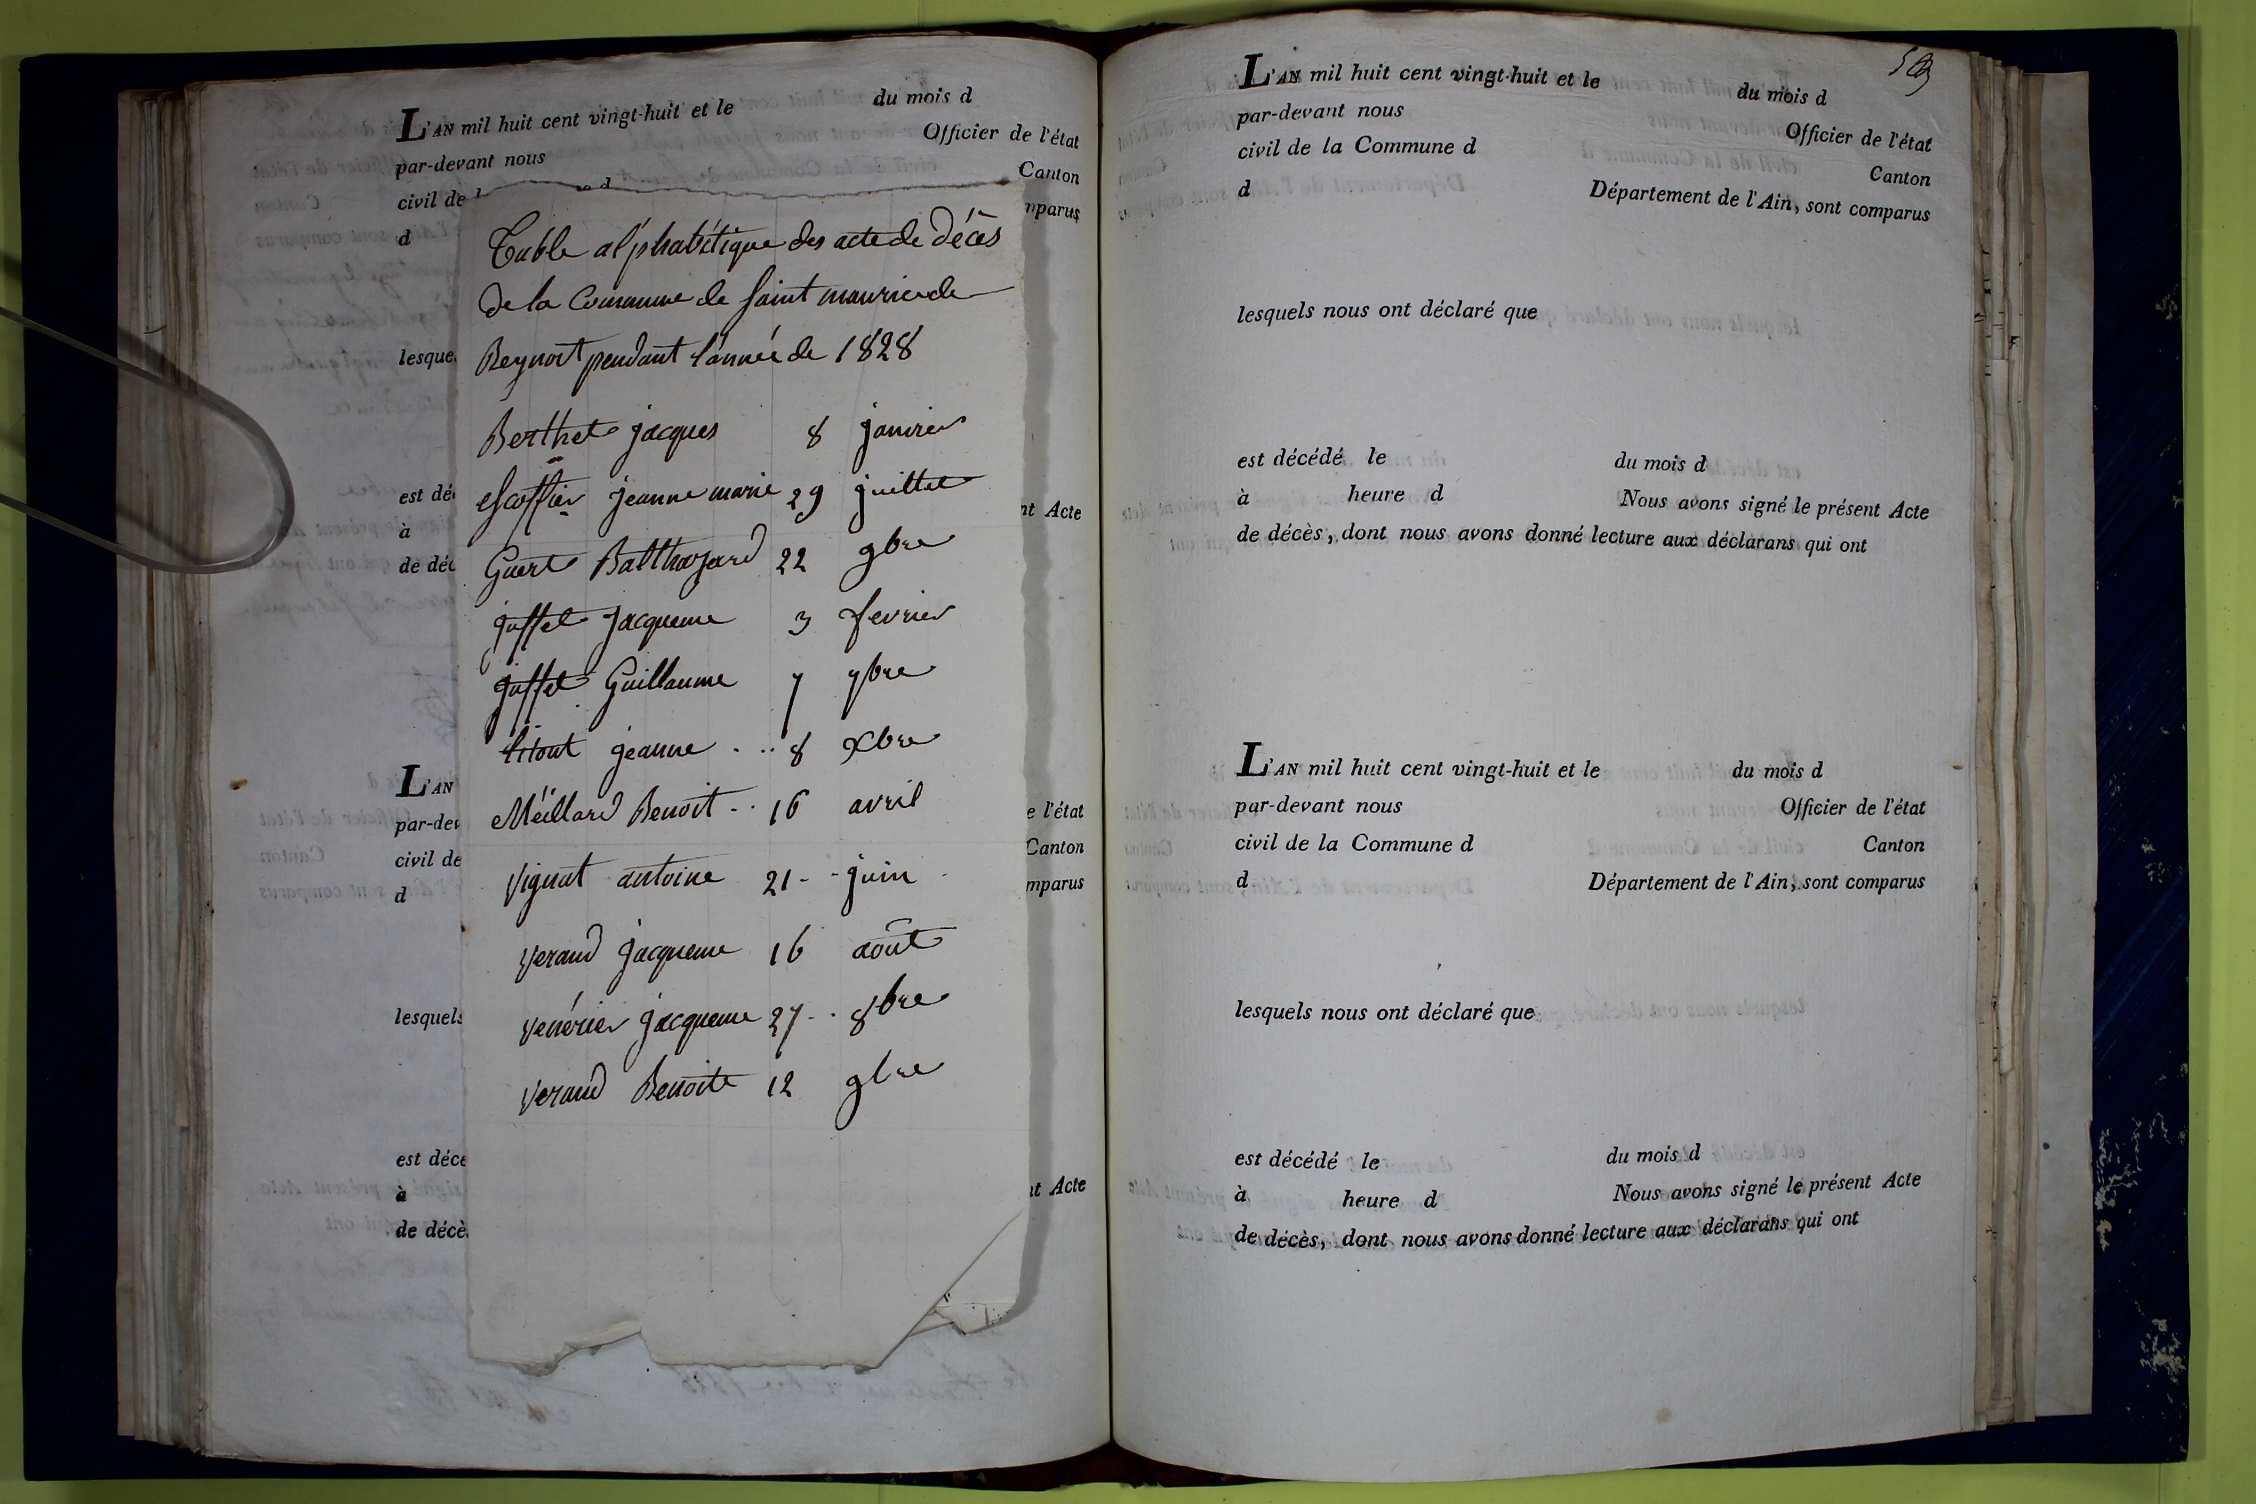 L'AN mil huit cent vingt-huit et le du mois d
par-devant nous Officier de l'état
civil de Canton
d mparus
lesque
est dé
à nt Acte
de déc
Table alphabétique des acte de Décès
De la Commune de Saint maurice de
Beynost pendant l'année de 1828
Berthet jacques 8 janvier
escoffier jeanne marie 29 juillet
Guert Balthazard 22 9bre
juffet jacqueme 3 fevrier
juffet Guillaume 7 7bre
jeanne 8 xbre
Meillard Benoit 16 avril
Vignat antoine 21 juin
Verand jacqueme 16 août
Venérier jacqueme 27 8bre
Verand Benoite 12 9bre
L'AN
par-dev e l'état
civil de Canton
d mparus
lesquels
est déce
à nt Acte
de décè
L'AN mil huit cent vingt-huit et le du mois d
par-devant nous Officier de l'état
civil de la Commune d Canton
d Département de l'Ain, sont comparus
lesquels nous ont déclaré que
est décédé le du mois d
à heure d Nous avons signé le présent Acte
de décès, dont nous avons donné lecture aux déclarans qui ont
L'AN mil huit cent vingt-huit et le du mois d
par-devant nous Officier de l'état
civil de la Commune d Canton
d Département de l'Ain, sont comparus
lesquels nous ont déclaré que
est décédé le du mois d
à heure d Nous avons signé le présent Acte
de décès, dont nous avons donné lecture aux déclarans qui ont